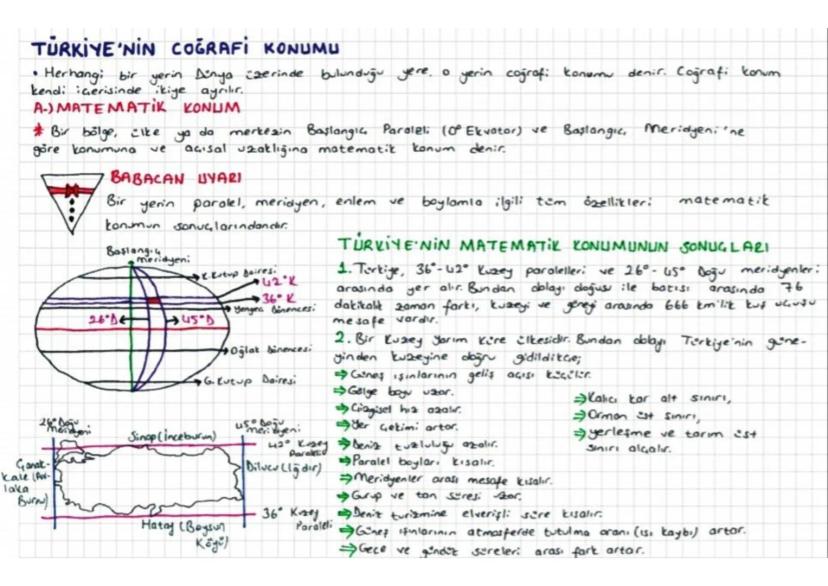 TÜRKİYE'NİN COĞRAFİ KONUMU
• Herhangi bir yerin Dünya üzerinde bulunduğu yere, o yerin coğrafi konumu denir. Coğrafi konum
kendi içerisinde ikiye ayrılır.
A-) MATEMATİK KONUM
* Bir bölge, ülke ya da merkezin Başlangıç Paraleli (0° Ekvator) ve Başlangıç Meridyeni'ne
göre konumuna ve açısal uzaklığına matematik konum denir.
BABACAN UYARI
Bir yerin paralel, meridyen, enlem ve boylamla ilgili tüm özellikleri matematik
konumun sonuçlarındandır.
Başlangıç
meridyeni
K. Kutup Dairesi
42° K
36° K
Yengeç Dönencesi
26° D
45° D
Oğlak Dönencesi
G. Kutup Dairesi
26° Doğu
Meridyeni
45° Doğu
meridyeni
Sinop (İnceburun)
42° Kuzey
Paraleli
Çanak-
kale (Av-
laka
Burnu)
Dilucu (Iğdır)
36° Kuzey
Paraleli
Hatay (Beysun
Köyü)
TÜRKİYE'NİN MATEMATİK KONUMUNUN SONUÇLARI
1. Türkiye, 36°-42° Kuzey paralelleri ve 26°-45° Doğu meridyenleri
arasında yer alır. Bundan dolayı doğusu ile batısı arasında 76
dakikalık zaman farkı, kuzeyi ve güneyi arasında 666 km'lik kuş uçuşu
mesafe vardır.
2. Bir Kuzey Yarım Küre ülkesidir. Bundan dolayı Türkiye'nin güne-
yinden kuzeyine doğru gidildikçe;
⇒ Güneş ışınlarının geliş açısı küçülür.
⇒ Gölge boyu uzar.
⇒ Çizgisel hız azalır.
⇒ Yer çekimi artar.
⇒ Deniz tuzluluğu azalır.
⇒ Paralel boyları kısalır.
⇒ Meridyenler arası mesafe kısalır.
⇒ Gurup ve tan süresi uzar.
⇒ Deniz turizmine elverişli süre kısalır.
⇒ Güneş ışınlarının atmosferde tutulma oranı (ısı kaybı) artar.
⇒ Gece ve gündüz süreleri arası fark artar.
⇒ Kalıcı kar alt sınırı,
⇒ Orman üst sınırı,
⇒ yerleşme ve tarım üst
sınırı alçalır.